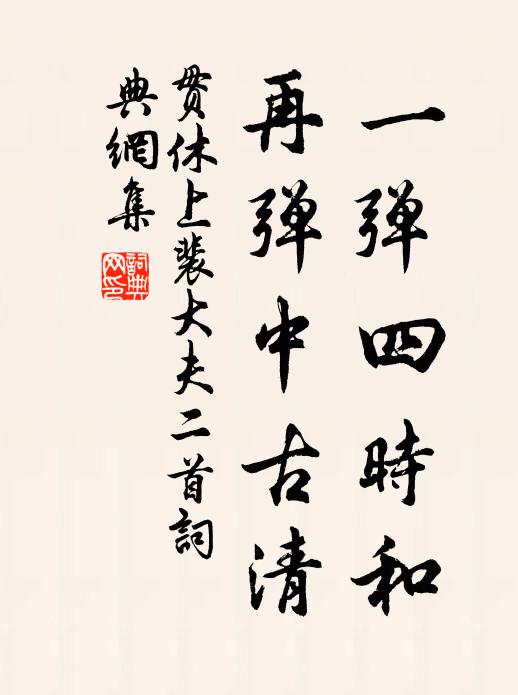 一弹四時和
再弹中古清
贯休上裴大夫二首詞
典網集
詞典
网印